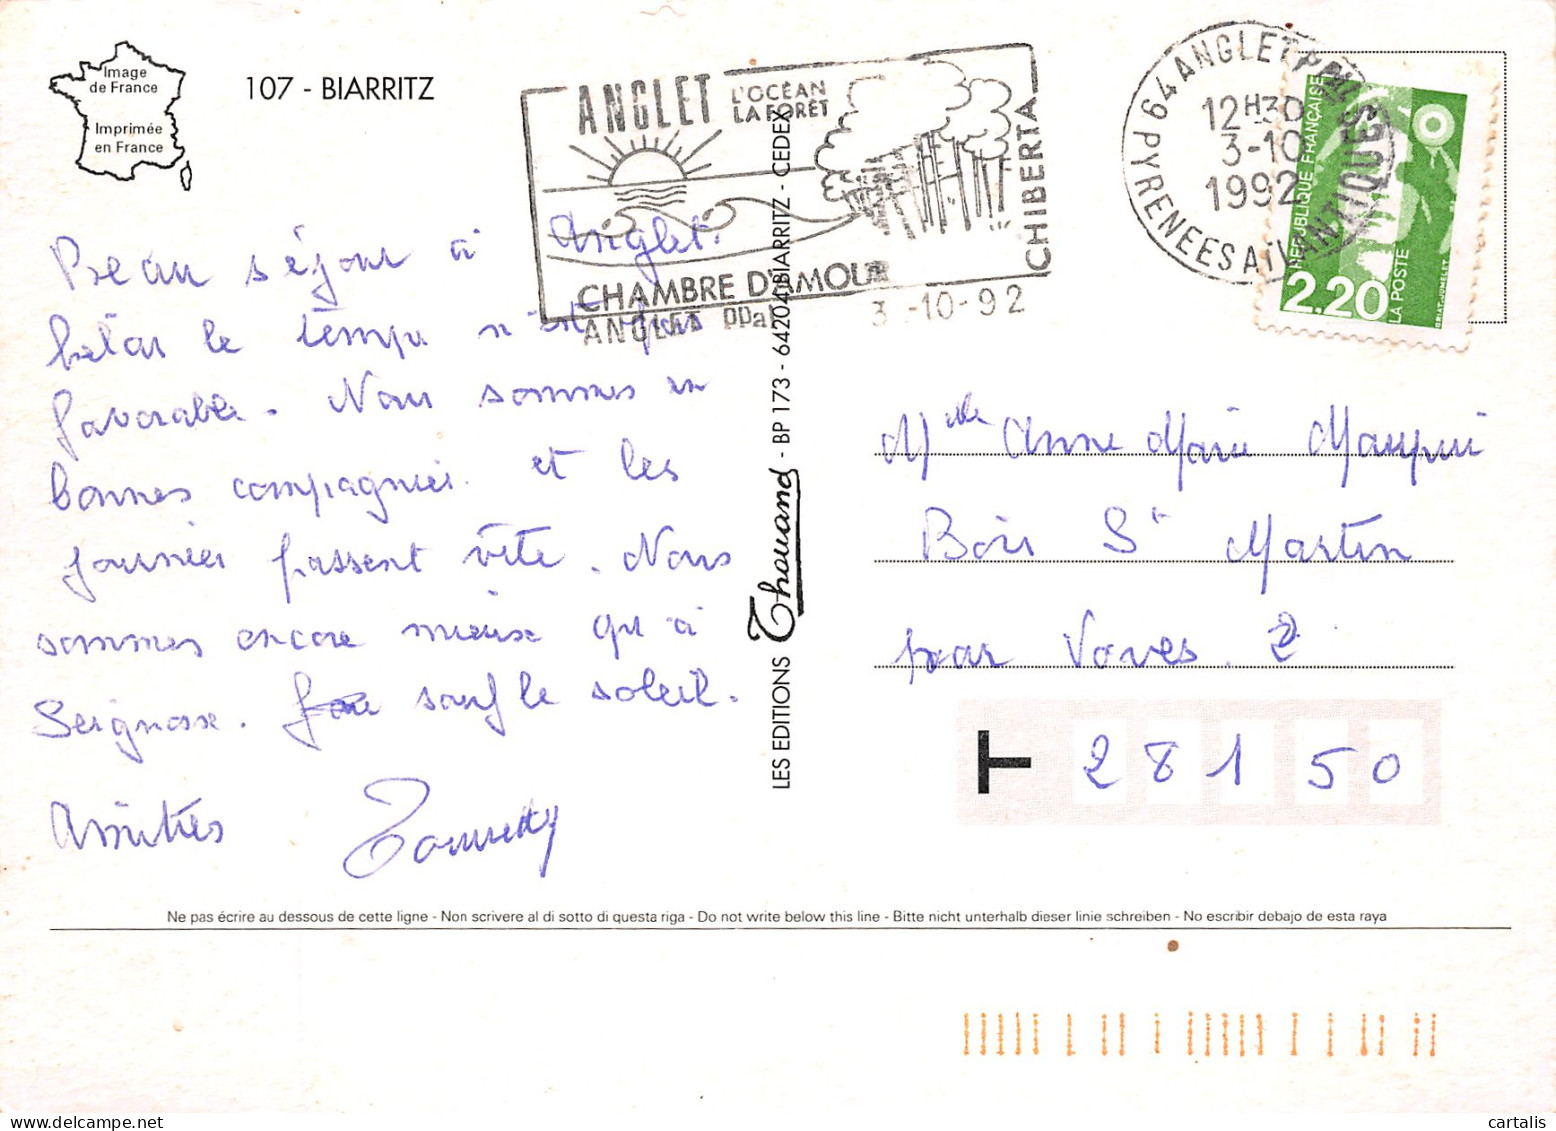 Image
de France
Imprimée
en France
107 - BIARRITZ
ANGLET L'OCÉAN
LA FORÊT
CHIBERTA
CHAMBRE D'AMOUR
ANGLET PPAL 3-10-92
64 ANGLET PPAL
12H30
3-10
1992
PYRENEES ATLANTIQUES
REPUBLIQUE FRANÇAISE
2.20
LA POSTE
Beau séjour à Anglet.
hélas le temps n'est pas
favorable. Nous sommes en
bonnes compagnies et les
journées passent vite. Nous
sommes encore mieux qu'à
Seignosse. sauf le soleil.
Amitiés
LES EDITIONS Thouand - BP 173 - 64204 BIARRITZ - CEDEX
Mlle Anne Marie Maupui
Bois St Martin
par Voves.
T 28150
Ne pas écrire au dessous de cette ligne - Non scrivere al di sotto di questa riga - Do not write below this line - Bitte nicht unterhalb dieser linie schreiben - No escribir debajo de esta raya
cartalis